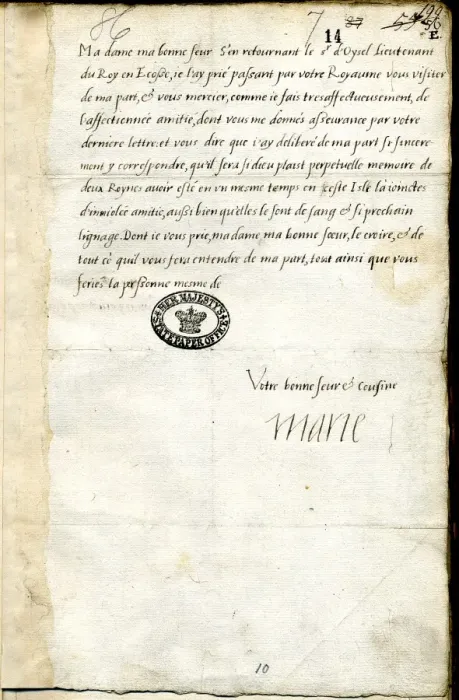 86
7 27 57 199
14 56
E.
Ma dame ma bonne seur S'en retournant le sr d'Oysel Lieutenant
du Roy en Ecosse, ie l'ay prié passant par votre Royaume vous visiter
de ma part, & vous mercier, comme ie fais tresaffectueusement, de
l'affectionnée amitie, dont vous me donnés asseurance par votre
derniere lettre: et vous dire que i'ay deliberé de ma part si sincere-
ment y correspondre, qu'il sera si dieu plaist perpetuelle memoire de
deux Roynes avoir esté en un mesme temps en ceste Isle là ioinctes
d'inviolée amitie, aussi bien qu'elles le sont de sang & si prochain
lignage. Dont ie vous prie, ma dame ma bonne sœur, le croire, & de
tout ce quil vous fera entendre de ma part, tout ainsi que vous
feriés la personne mesme de
HER MAJESTY'S
STATE PAPER OFFICE
Votre bonne seur & cousine
Marie
10